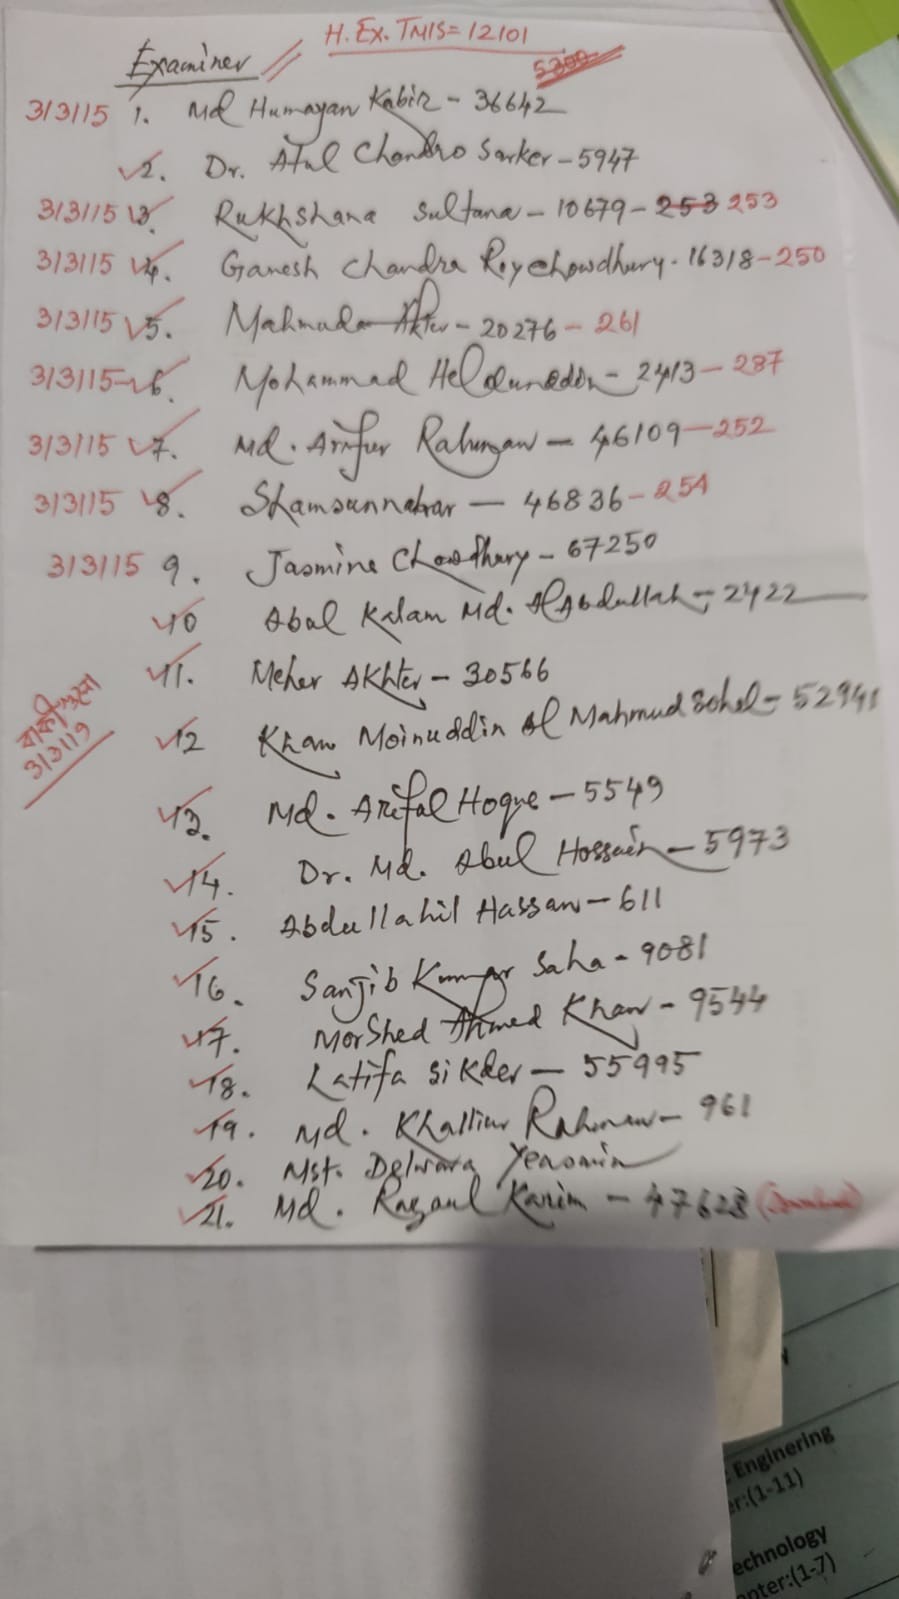 H. Ex. TMIS = 12101
Examiner
5300
3/3/15 1. Md Humayan Kabir - 36642
2. Dr. Atul Chandro Sarker - 5947
3/3/15 3. Rukhshana Sultana - 10679 - 253 253
3/3/15 4. Ganesh Chandra Roychowdhury - 16318 - 250
3/3/15 5. Mahmuda Akter - 20276 - 261
3/3/15 6. Mohammad Helaluneddin - 2413 - 287
3/3/15 7. Md. Arifur Rahman - 46109 - 252
3/3/15 8. Shamsunnahar - 46836 - 254
3/3/15 9. Jasmine Chowdhury - 67250
10 Abul Kalam Md. Al Abdullah - 2422
11. Meher Akhter - 30566
12 Khan Moinuddin Al Mahmud Sohel - 52941
3/3/19
13. Md. Ariful Hoque - 5549
14. Dr. Md. Abul Hossain - 5973
15. Abdullahil Hassan - 611
16. Sanjib Kumar Saha - 9081
17. Morshed Ahmed Khan - 9544
18. Latifa Sikder - 55995
19. Md. Khalliur Rahman - 961
20. Mst. Delwara Yeasmin
21. Md. Razaul Karim - 47628
Enginering
er:(1-11)
echnology
pter:(1-7)